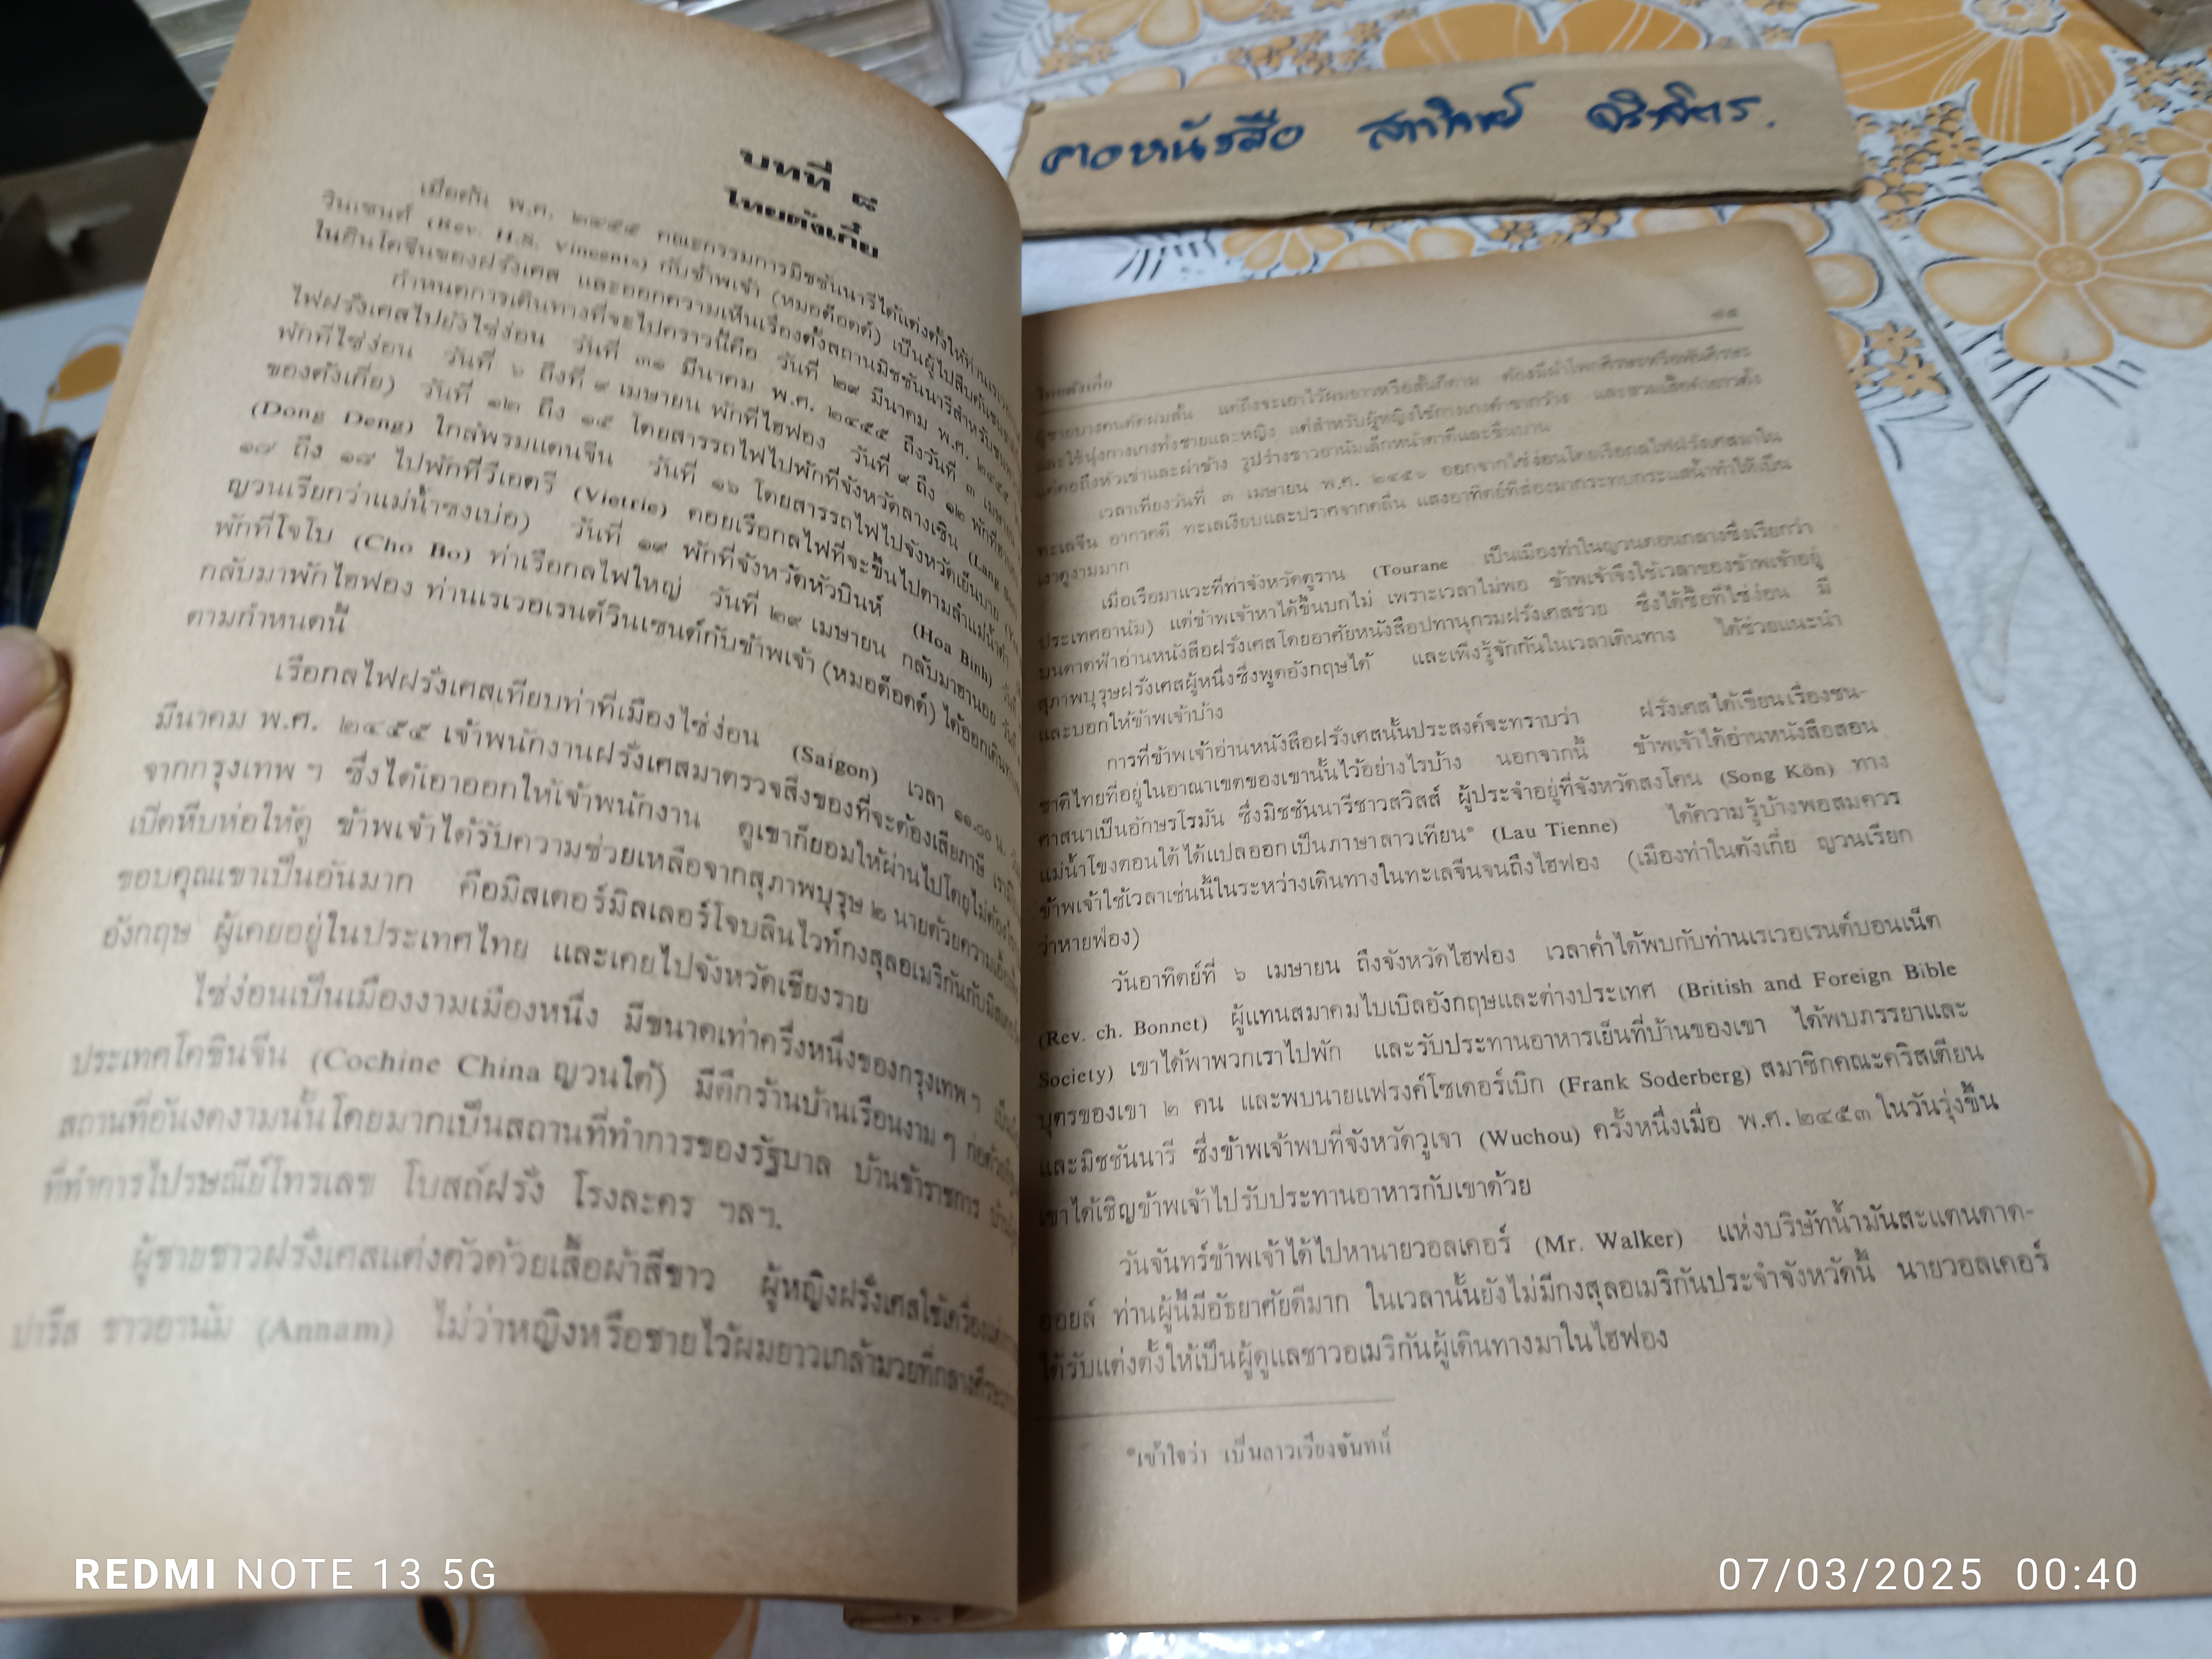 บทที่ ๘
ไทยตังเกี๋ย
เมื่อต้น พ.ศ. ๒๔๕๕ คณะกรรมการมิชชันนารีได้แต่งตั้งให้ท่านเรเวอ
วินเซนต์ (Rev. H.S. Vincents) กับข้าพเจ้า (หมอด็อดด์) เป็นผู้ไปสืบค้น
ในอินโดจีนของฝรั่งเศส และออกความเห็นเรื่องตั้งสถานมิชชันนารีสำหรับ
กำหนดการเดินทางที่จะไปคราวนี้คือ วันที่ ๒๙ มีนาคม พ.ศ. ๒๔๕๕
ไฟฝรั่งเศสไปยังไซ่ง่อน วันที่ ๓๑ มีนาคม พ.ศ. ๒๔๕๕ ถึงวันที่ ๓ เมษายน
พักที่ไซ่ง่อน วันที่ ๖ ถึงที่ ๙ เมษายน พักที่ไฮฟอง วันที่ ๙ ถึง ๑๒ พักที่
ของตังเกี๋ย) วันที่ ๑๒ ถึง ๑๕ โดยสารรถไฟไปพักที่จังหวัดลางเซิน (Lang
(Dong Deng) ใกล้พรมแดนจีน วันที่ ๑๖ โดยสารรถไฟไปจังหวัดเย็นบาย
๑๗ ถึง ๑๘ ไปพักที่วีเอตรี (Vietrie) คอยเรือกลไฟที่จะขึ้นไปตามลำแม่น้ำดำ
ญวนเรียกว่าแม่น้ำซงเบ่อ) วันที่ ๑๙ พักที่จังหวัดหัวบินห์ (Hoa Binh)
พักที่โจโบ (Cho Bo) ท่าเรือกลไฟใหญ่ วันที่ ๒๙ เมษายน กลับมาฮานอย
กลับมาพักไฮฟอง ท่านเรเวอเรนต์วินเซนต์กับข้าพเจ้า (หมอด็อดด์) ได้ออกเดินทาง
ตามกำหนดนี้
เรือกลไฟฝรั่งเศสเทียบท่าที่เมืองไซ่ง่อน (Saigon) เวลา ๑๑.๐๐ น.
มีนาคม พ.ศ. ๒๔๕๕ เจ้าพนักงานฝรั่งเศสมาตรวจสิ่งของที่จะต้องเสียภาษี
จากกรุงเทพ ฯ ซึ่งได้เอาออกให้เจ้าพนักงาน ดูเขาก็ยอมให้ผ่านไปโดยไม่ต้อง
เปิดหีบห่อให้ดู ข้าพเจ้าได้รับความช่วยเหลือจากสุภาพบุรุษ ๒ นายด้วยความ
ขอบคุณเขาเป็นอันมาก คือมิสเตอร์มิลเลอร์โจบลินไวท์กงสุลอเมริกันกับมิสเตอร์
อังกฤษ ผู้เคยอยู่ในประเทศไทย และเคยไปจังหวัดเชียงราย
ไซ่ง่อนเป็นเมืองงามเมืองหนึ่ง มีขนาดเท่าครึ่งหนึ่งของกรุงเทพ ฯ
ประเทศโคชินจีน (Cochine China ญวนใต้) มีตึกร้านบ้านเรือนงาม ๆ ก่อด้วย
สถานที่อันงดงามนั้นโดยมากเป็นสถานที่ทำการของรัฐบาล บ้านข้าราชการ
ที่ทำการไปรษณีย์โทรเลข โบสถ์ฝรั่ง โรงละคร ฯลฯ.
ผู้ชายชาวฝรั่งเศสแต่งตัวด้วยเสื้อผ้าสีขาว ผู้หญิงฝรั่งเศสใช้เครื่อง
ปารีส ชาวอานัม (Annam) ไม่ว่าหญิงหรือชายไว้ผมยาวเกล้ามวยที่กลางศีรษะ
คอหนังสือ
ไทยตังเกี๋ย ๑๕
ผู้ชายบางคนตัดผมสั้น แต่ถึงจะเอาไว้ผมยาวหรือสั้นก็ตาม ต้องมีผ้าโพกศีรษะหรือพันศีรษะ
และใช้นุ่งกางเกงทั้งชายและหญิง แต่สำหรับผู้หญิงใช้กางเกงดำขากว้าง และสวมเสื้อดำยาวตั้ง
แต่คอถึงหัวเข่าและผ่าข้าง รูปร่างชาวอานัมเล็กหน้าตาดีและชื่นบาน
เวลาเที่ยงวันที่ ๓ เมษายน พ.ศ. ๒๔๕๖ ออกจากไซ่ง่อนโดยเรือกลไฟฝรั่งเศสมาใน
ทะเลจีน อากาศดี ทะเลเงียบและปราศจากคลื่น แสงอาทิตย์ที่ส่องมากระทบกระแสน้ำทำให้เป็น
เงาดูงามมาก
เมื่อเรือมาแวะที่ท่าจังหวัดตูราน (Tourane เป็นเมืองท่าในญวนตอนกลางซึ่งเรียกว่า
ประเทศอานัม) แต่ข้าพเจ้าหาได้ขึ้นบกไม่ เพราะเวลาไม่พอ ข้าพเจ้าจึงใช้เวลาของข้าพเจ้าอยู่
บนดาดฟ้าอ่านหนังสือฝรั่งเศสโดยอาศัยหนังสือปทานุกรมฝรั่งเศสช่วย ซึ่งได้ซื้อที่ไซ่ง่อน มี
สุภาพบุรุษฝรั่งเศสผู้หนึ่งซึ่งพูดอังกฤษได้ และเพิ่งรู้จักกันในเวลาเดินทาง ได้ช่วยแนะนำ
และบอกให้ข้าพเจ้าบ้าง
การที่ข้าพเจ้าอ่านหนังสือฝรั่งเศสนั้นประสงค์จะทราบว่า ฝรั่งเศสได้เขียนเรื่องชน-
ชาติไทยที่อยู่ในอาณาเขตของเขานั้นไว้อย่างไรบ้าง นอกจากนี้ ข้าพเจ้าได้อ่านหนังสือสอน
ศาสนาเป็นอักษรโรมัน ซึ่งมิชชันนารีชาวสวิสส์ ผู้ประจำอยู่ที่จังหวัดสงโคน (Song Kōn) ทาง
แม่น้ำโขงตอนใต้ ได้แปลออกเป็นภาษาลาวเทียน* (Lau Tienne) ได้ความรู้บ้างพอสมควร
ข้าพเจ้าใช้เวลาเช่นนี้ในระหว่างเดินทางในทะเลจีนจนถึงไฮฟอง (เมืองท่าในตังเกี๋ย ญวนเรียก
ว่าหายฟ่อง)
วันอาทิตย์ที่ ๖ เมษายน ถึงจังหวัดไฮฟอง เวลาค่ำได้พบกับท่านเรเวอเรนต์บอนเน็ต
(Rev. ch. Bonnet) ผู้แทนสมาคมไบเบิลอังกฤษและต่างประเทศ (British and Foreign Bible
Society) เขาได้พาพวกเราไปพัก และรับประทานอาหารเย็นที่บ้านของเขา ได้พบภรรยาและ
บุตรของเขา ๒ คน และพบนายแฟรงค์โซเดอร์เบิก (Frank Soderberg) สมาชิกคณะคริสเตียน
และมิชชันนารี ซึ่งข้าพเจ้าพบที่จังหวัดวูเจา (Wuchou) ครั้งหนึ่งเมื่อ พ.ศ. ๒๔๕๓ ในวันรุ่งขึ้น
เขาได้เชิญข้าพเจ้าไปรับประทานอาหารกับเขาด้วย
วันจันทร์ข้าพเจ้าได้ไปหานายวอลเคอร์ (Mr. Walker) แห่งบริษัทน้ำมันสะแตนดาด-
ออยล์ ท่านผู้นี้มีอัธยาศัยดีมาก ในเวลานั้นยังไม่มีกงสุลอเมริกันประจำจังหวัดนี้ นายวอลเคอร์
ได้รับแต่งตั้งให้เป็นผู้ดูแลชาวอเมริกันผู้เดินทางมาในไฮฟอง
*เข้าใจว่า เป็นลาวเวียงจันทน์
REDMI NOTE 13 5G
07/03/2025 00:40